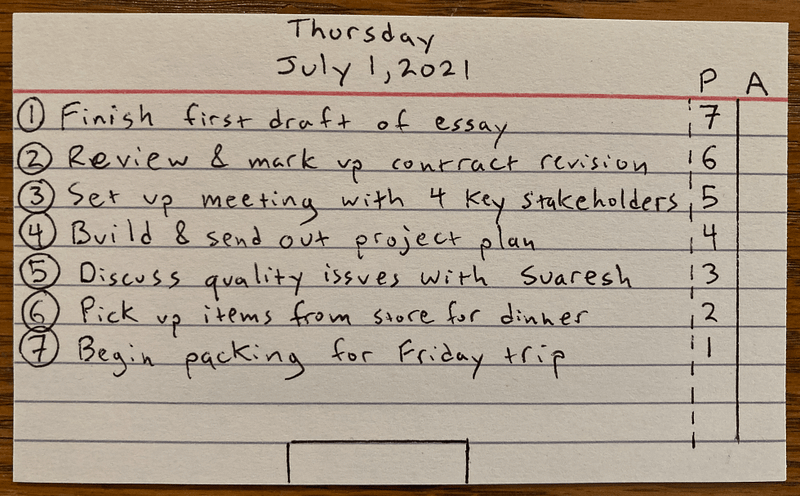 Thursday
July 1, 2021
P A
① Finish first draft of essay 7
② Review & mark up contract revision 6
③ Set up meeting with 4 key stakeholders 5
④ Build & send out project plan 4
⑤ Discuss quality issues with Suaresh 3
⑥ Pick up items from store for dinner 2
⑦ Begin packing for Friday trip 1